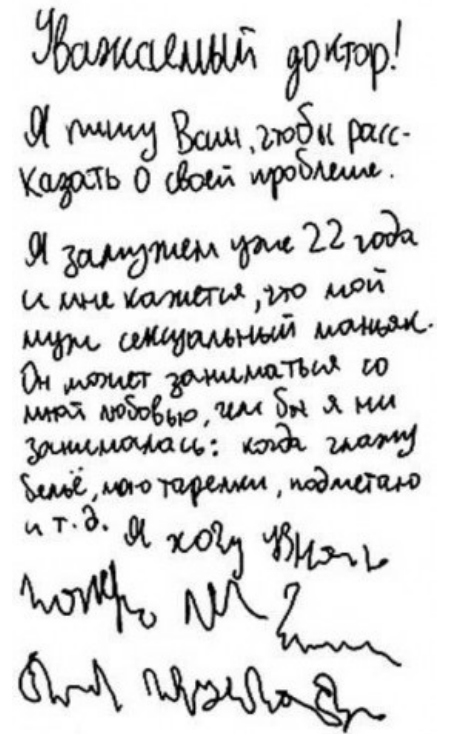 Уважаемый доктор!
Я пишу Вам, чтобы расс-
казать о своей проблеме.
Я замужем уже 22 года
и мне кажется, что мой
муж сексуальный маньяк.
Он может заниматься со
мной любовью, чем бы я ни
занималась: когда глажу
бельё, мою тарелки, подметаю
и т.д. Я хочу узнать